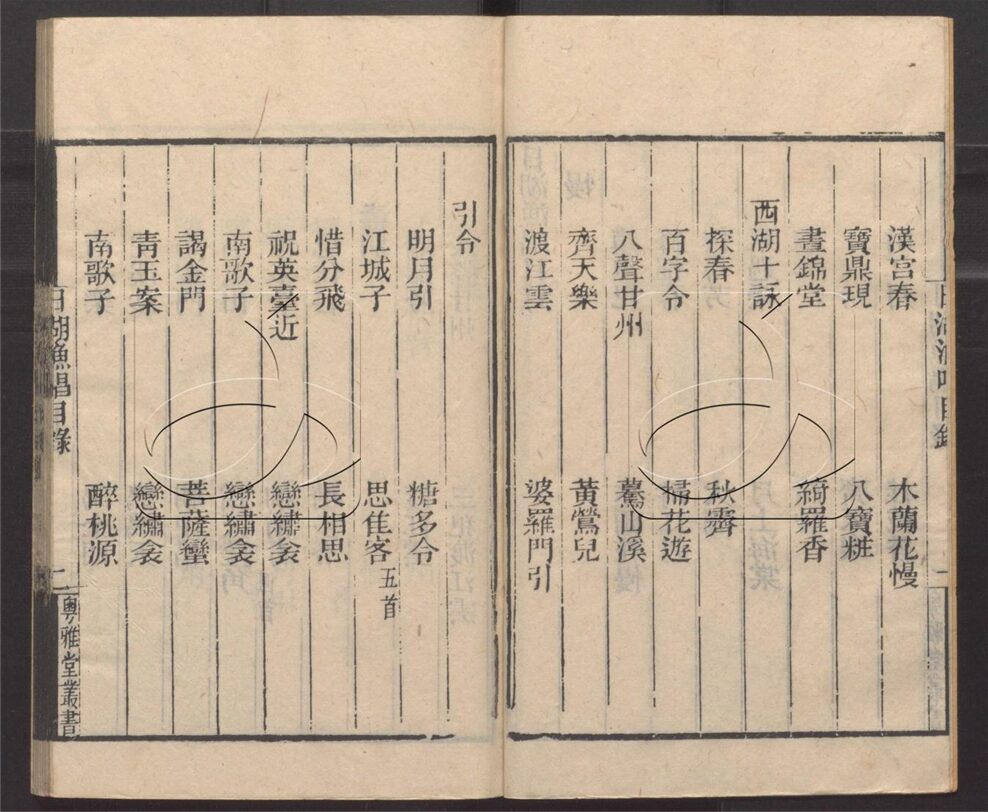 漢宮春 木蘭花慢
寶鼎現 八寶粧
晝錦堂 綺羅香
西湖十詠
探春 秋霽
百字令 掃花遊
八聲甘州 驀山溪
齊天樂 黃鶯兒
渡江雲 婆羅門引
引令
明月引 糖多令
江城子 思佳客五首
惜分飛 長相思
祝英臺近 戀繡衾
南歌子 戀繡衾
謁金門 菩薩蠻
青玉案 戀繡衾
南歌子 醉桃源
日湖漁唱目錄 二 粵雅堂叢書